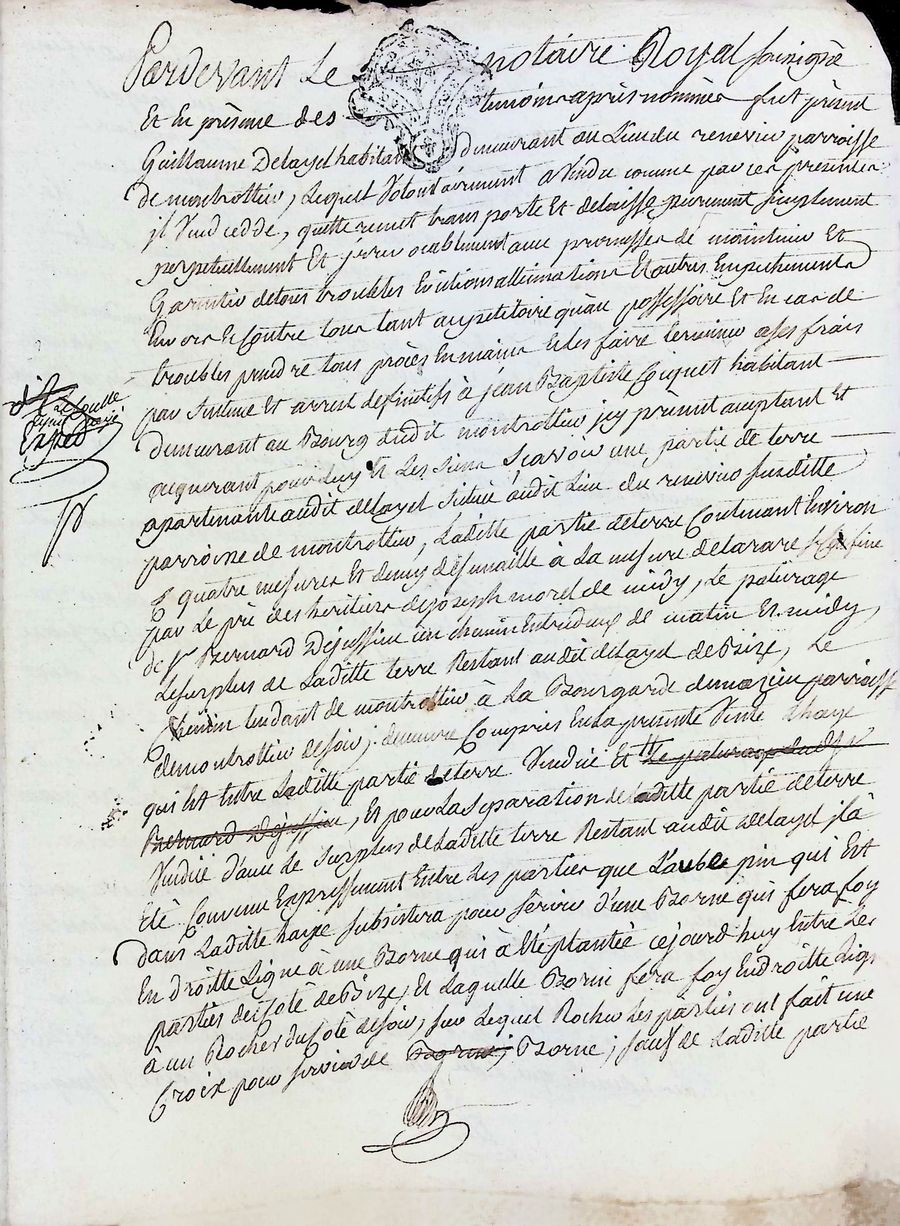 Pardevant Le notaire Royal soussigné
Et En présence des temoins après nommés fut présent
Guillaume Delayel habitant demeurant au Lieu du renevier parroisse
de montrottier, Lequel Volontairement a Vendu comme par ces présentes
il Vend cedde, quitte remet transporte Et délaisse purement simplement
perpetuellement Et irrevocablement avec promesses de maintenir Et
Garantir de tous troubles Evictions allienations Et autres Empêchements
Envers Et Contre tous tant au petitoire qu'au possessoire Et En cas de
troubles prendre tous procès En mains Et les faire terminer a ses frais
par sentence Et arrest definitifs à jean Baptiste Coquet habitant
demeurant au Bourg dudit montrottier icy présent acceptant et
acquerant pour luy Et Les siens Scavoir une partie de terre
apartenante audit delayel Située audit Lieu du renevier susditte
parroisse de montrottier, Laditte partie de terre Contenant Environ
quatre mesures Et demy de semaille à La mesure de larare Se Confine
par Le pré des heritiers de joseph morel de midy, Le paturage
de Sr Bernard Dejussieu un chemin Entredeux de matin Et midy,
Le surplus de Laditte terre Restant audit delayel de Bize, Le
Chemin tendant de montrottier à La Bourgarde demazieu parroisse
de montrottier de soir, demeure Compris En La presente Vente L'haye
qui Est Entre Laditte partie de terre Vendüe Et Le paturage dudit Sr
Bernard Dejussieu, Et pour La Séparation de Laditte partie de terre
Vendüe d'avec Le Surplus de Laditte terre Restant audit delayel il à
Eté Convenu Expressément Entre Les parties que L'aube pin qui Est
dans Laditte haye Subsistera pour servir d'une Borne qui fera foy
En droitte Ligne à une Borne qui à Eté plantée cejourd'huy Entre Les
parties du Coté de Bize, Et Laquelle Borne fera foy En droitte Ligne
à un Rocher du Coté de soir, sur Lequel Rocher Les parties ont fait une
Croix pour servir de Borne; sauf de Laditte partie